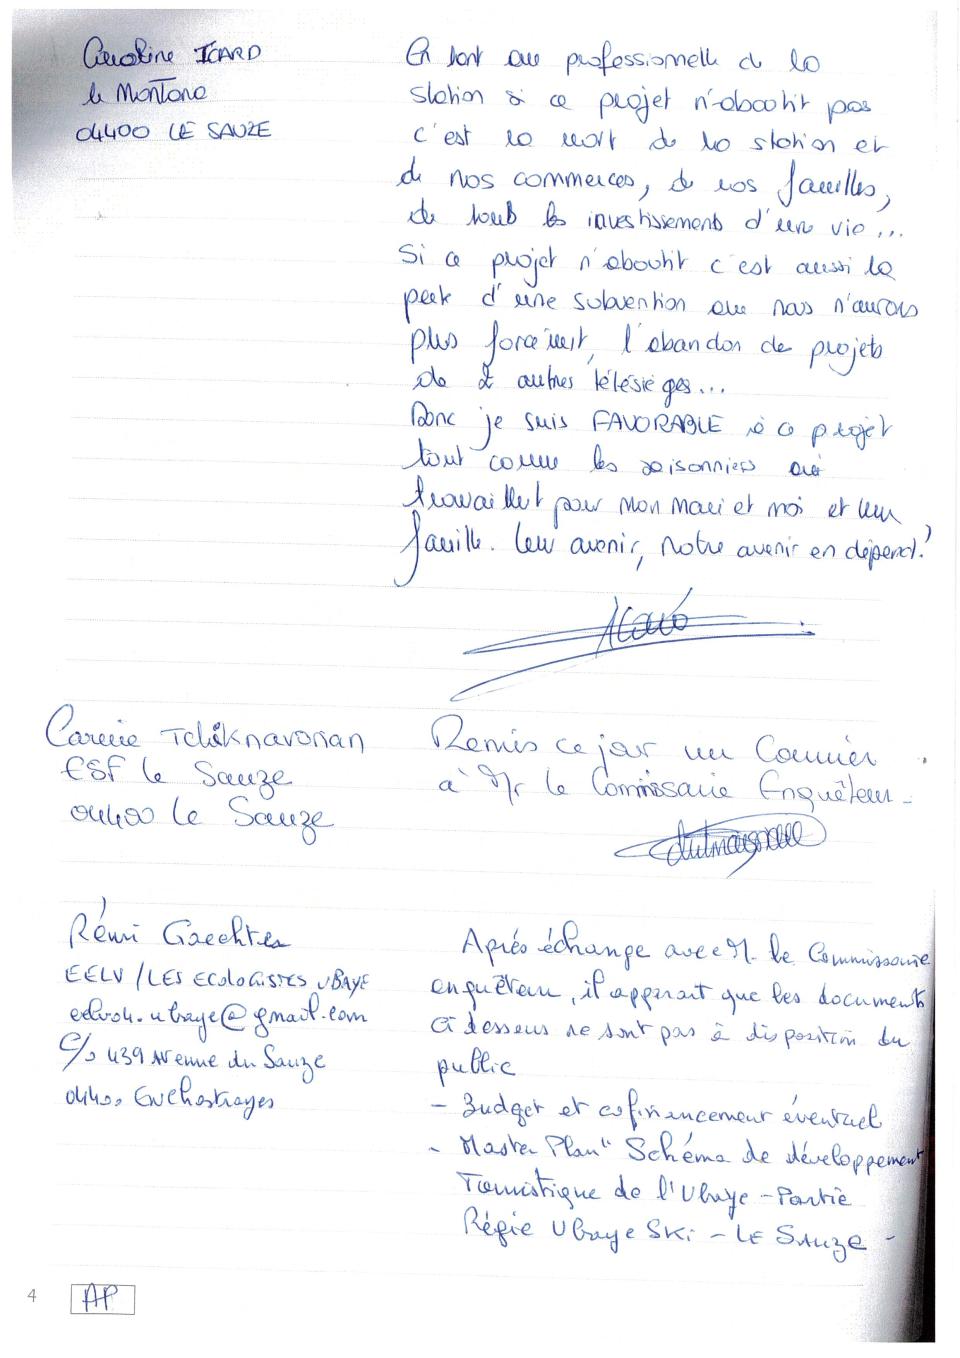 Caroline ICARD
le Montana
04400 LE SAUZE
En tant que professionnelle de la
station si ce projet n'aboutit pas
c'est la mort de la station et
de nos commerces, de nos familles,
de touts les investissements d'une vie...
Si ce projet n'aboutit c'est aussi la
perte d'une subvention que nous n'aurons
plus forcément, l'abandon de projets
de 2 autres télésièges...
Donc je suis FAVORABLE à ce projet
tout comme les saisonniers qui
travaillet pour mon mari et moi et leur
famille. Leur avenir, notre avenir en dépend!
Carine Tchiknavorian
ESF le Sauze
04400 le Sauze
Remis ce jour un Courrier
à Mr le Commissaire Enquêteur -
Rémi Gaechter
EELV / LES ECOLOGISTES UBAYE
eelv04.ubaye@gmail.com
C/o 439 Avenue du Sauze
04400 Enchastrayes
Après échange avec M. le Commissaire
enquêteur, il apparait que les documents
ci dessous ne sont pas à disposition du
public
- Budget et cofinancement éventuel
- "Master Plan" Schéma de développement
Touristique de l'Ubaye - Partie
Régie Ubaye Ski - LE SAUZE -
4
AP